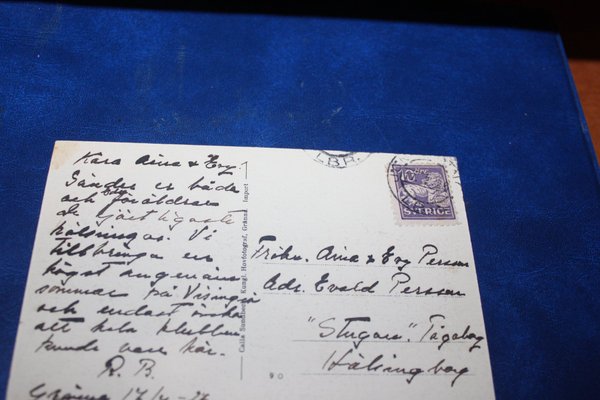 Kära Aina & Evy!
Sänder er båda
och Edra föräldrar
de hjärtligaste
hälsningar. Vi
tillbringa en
högst angenäm
sommar på Visingsö
och endast önska
att hela klubben
kunde vara här.
R. B.
Gränna 17/7
Calla Sundbecks Kungl. Hovfotograf, Gränna Import
90
LBR.
10 ÖRE
SVERIGE
Frökn. Aina & Evy Persson
Adr. Evald Persson
"Stugan". Tågaborg
Hälsingborg